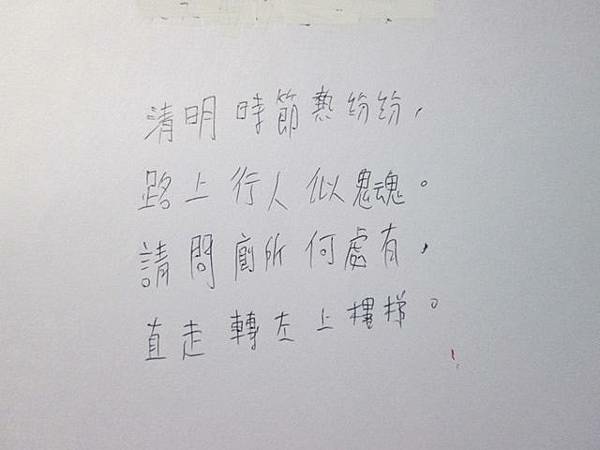 清明時節熱紛紛，
路上行人似鬼魂。
請問廁所何處有，
直走轉左上樓梯。